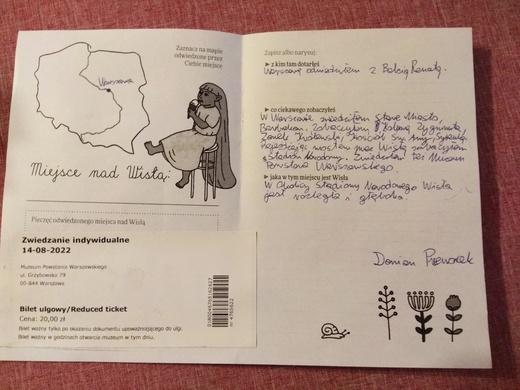 Zaznacz na mapie
odwiedzone przez
Ciebie miejsce
Warszawa
Miejsce nad Wisłą:
Pieczęć odwiedzonego miejsca nad Wisłą
Zwiedzanie indywidualne
14-08-2022
Muzeum Powstania Warszawskiego
ul. Grzybowska 79
00-844 Warszawa
Bilet ulgowy/Reduced ticket
Cena: 20,00 zł
Bilet ważny tylko po okazaniu dokumentu upoważniającego do ulgi.
Bilet ważny w godzinach otwarcia muzeum w tym dniu.
Zapisz albo narysuj:
z kim tam dotarłeś
Warszawę odwiedziłem z Babcią Renatą.
co ciekawego zobaczyłeś
W Warszawie zwiedziłem Stare Miasto,
Barbakan. Zobaczyłem Kolumnę Zygmunta,
Zamek Królewski, Kościół Św. Anny, Syrenkę.
Przejeżdżając mostem przez Wisłę zobaczyłem
Stadion Narodowy. Zwiedziłem też Muzeum
Powstania Warszawskiego.
jaka w tym miejscu jest Wisła
W okolicy Stadionu Narodowego Wisła
jest rozległa i głęboka.
Damian